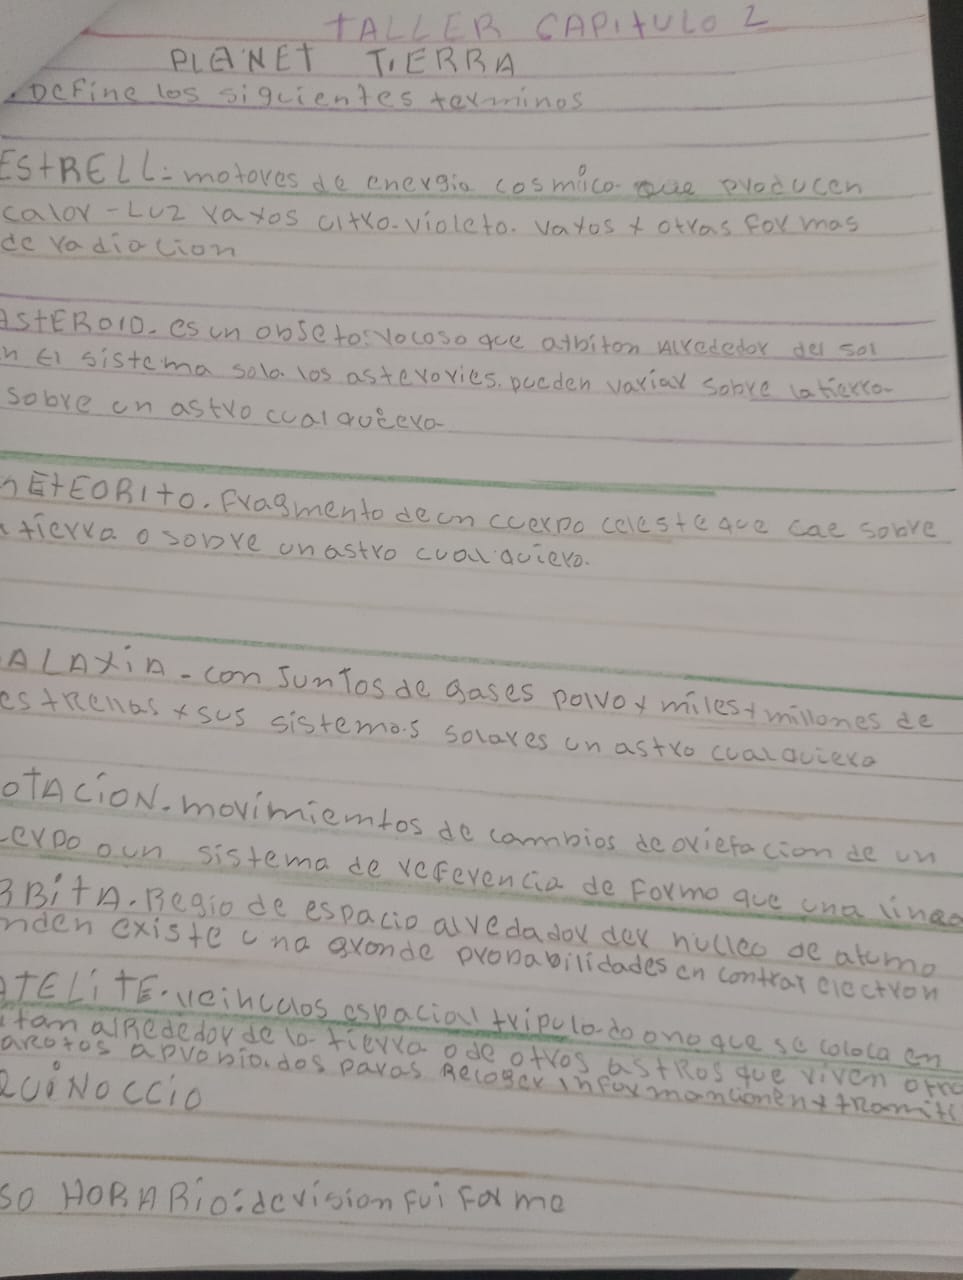 TALLER CAPITULO 2
PLANET TIERRA
. Define los siguientes terminos
EStRELL: motores de energia cosmico que producen
calor - Luz rayos ultro. violeto. rayos y otras formas
de radiacion
AStEROID. es un obseto: rocoso que atbiton alrededor del sol
n El sistema sola. los asterories. pueden variar sobre la tierra-
sobre un astro cualquiera
mEtEORIto. Fragmento de un cuerpo celeste que cae sobre
tierra o sobre un astro cualquiero.
ALAXiA - conJuntos de gases polvo y miles y millones de
estRellas y sus sistemas solares un astro cualquiera
otACiON. movimiemtos de cambios de orietacion de un
erpo o un sistema de referencia de formo que una linea
RBitA. Regio de espacio alrededor der nucleo de atumo
nden existe una gronde probabilidades en contrar electron
AtELitE. veihculos espacial tripulado o no que se coloca en
itan alRededor de la tierra o de otros astRos que viven otro
aretos aprobiados paras Recoger informancionen y tRamiti
QUiNOCCiO
SO HORARiO: devision fui formo